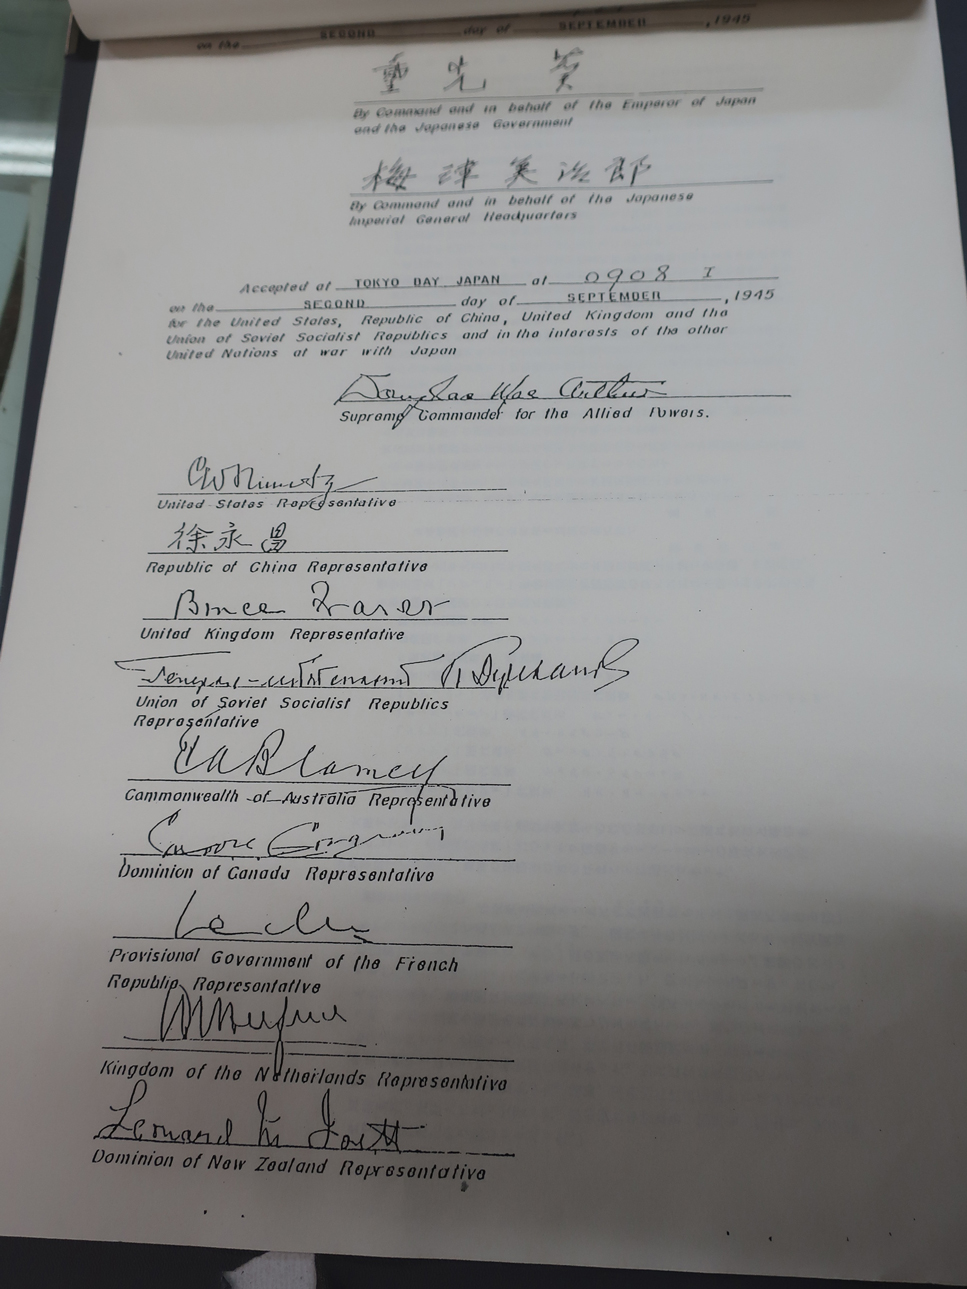 on the SECOND day of SEPTEMBER , 1945
重光葵
By Command and in behalf of the Emperor of Japan
and the Japanese Government
梅津美治郎
By Command and in behalf of the Japanese
Imperial General Headquarters
Accepted at TOKYO BAY, JAPAN at 0908 I
on the SECOND day of SEPTEMBER , 1945
for the United States, Republic of China, United Kingdom and the
Union of Soviet Socialist Republics and in the interests of the other
United Nations at war with Japan
Douglas MacArthur
Supreme Commander for the Allied Powers.
CW Nimitz
United States Representative
徐永昌
Republic of China Representative
Bruce Fraser
United Kingdom Representative
Генерал-лейтенант К Деревянко
Union of Soviet Socialist Republics
Representative
T A Blamey
Commonwealth of Australia Representative
Dominion of Canada Representative
Provisional Government of the French
Republic Representative
Kingdom of the Netherlands Representative
Leonard M Isitt
Dominion of New Zealand Representative